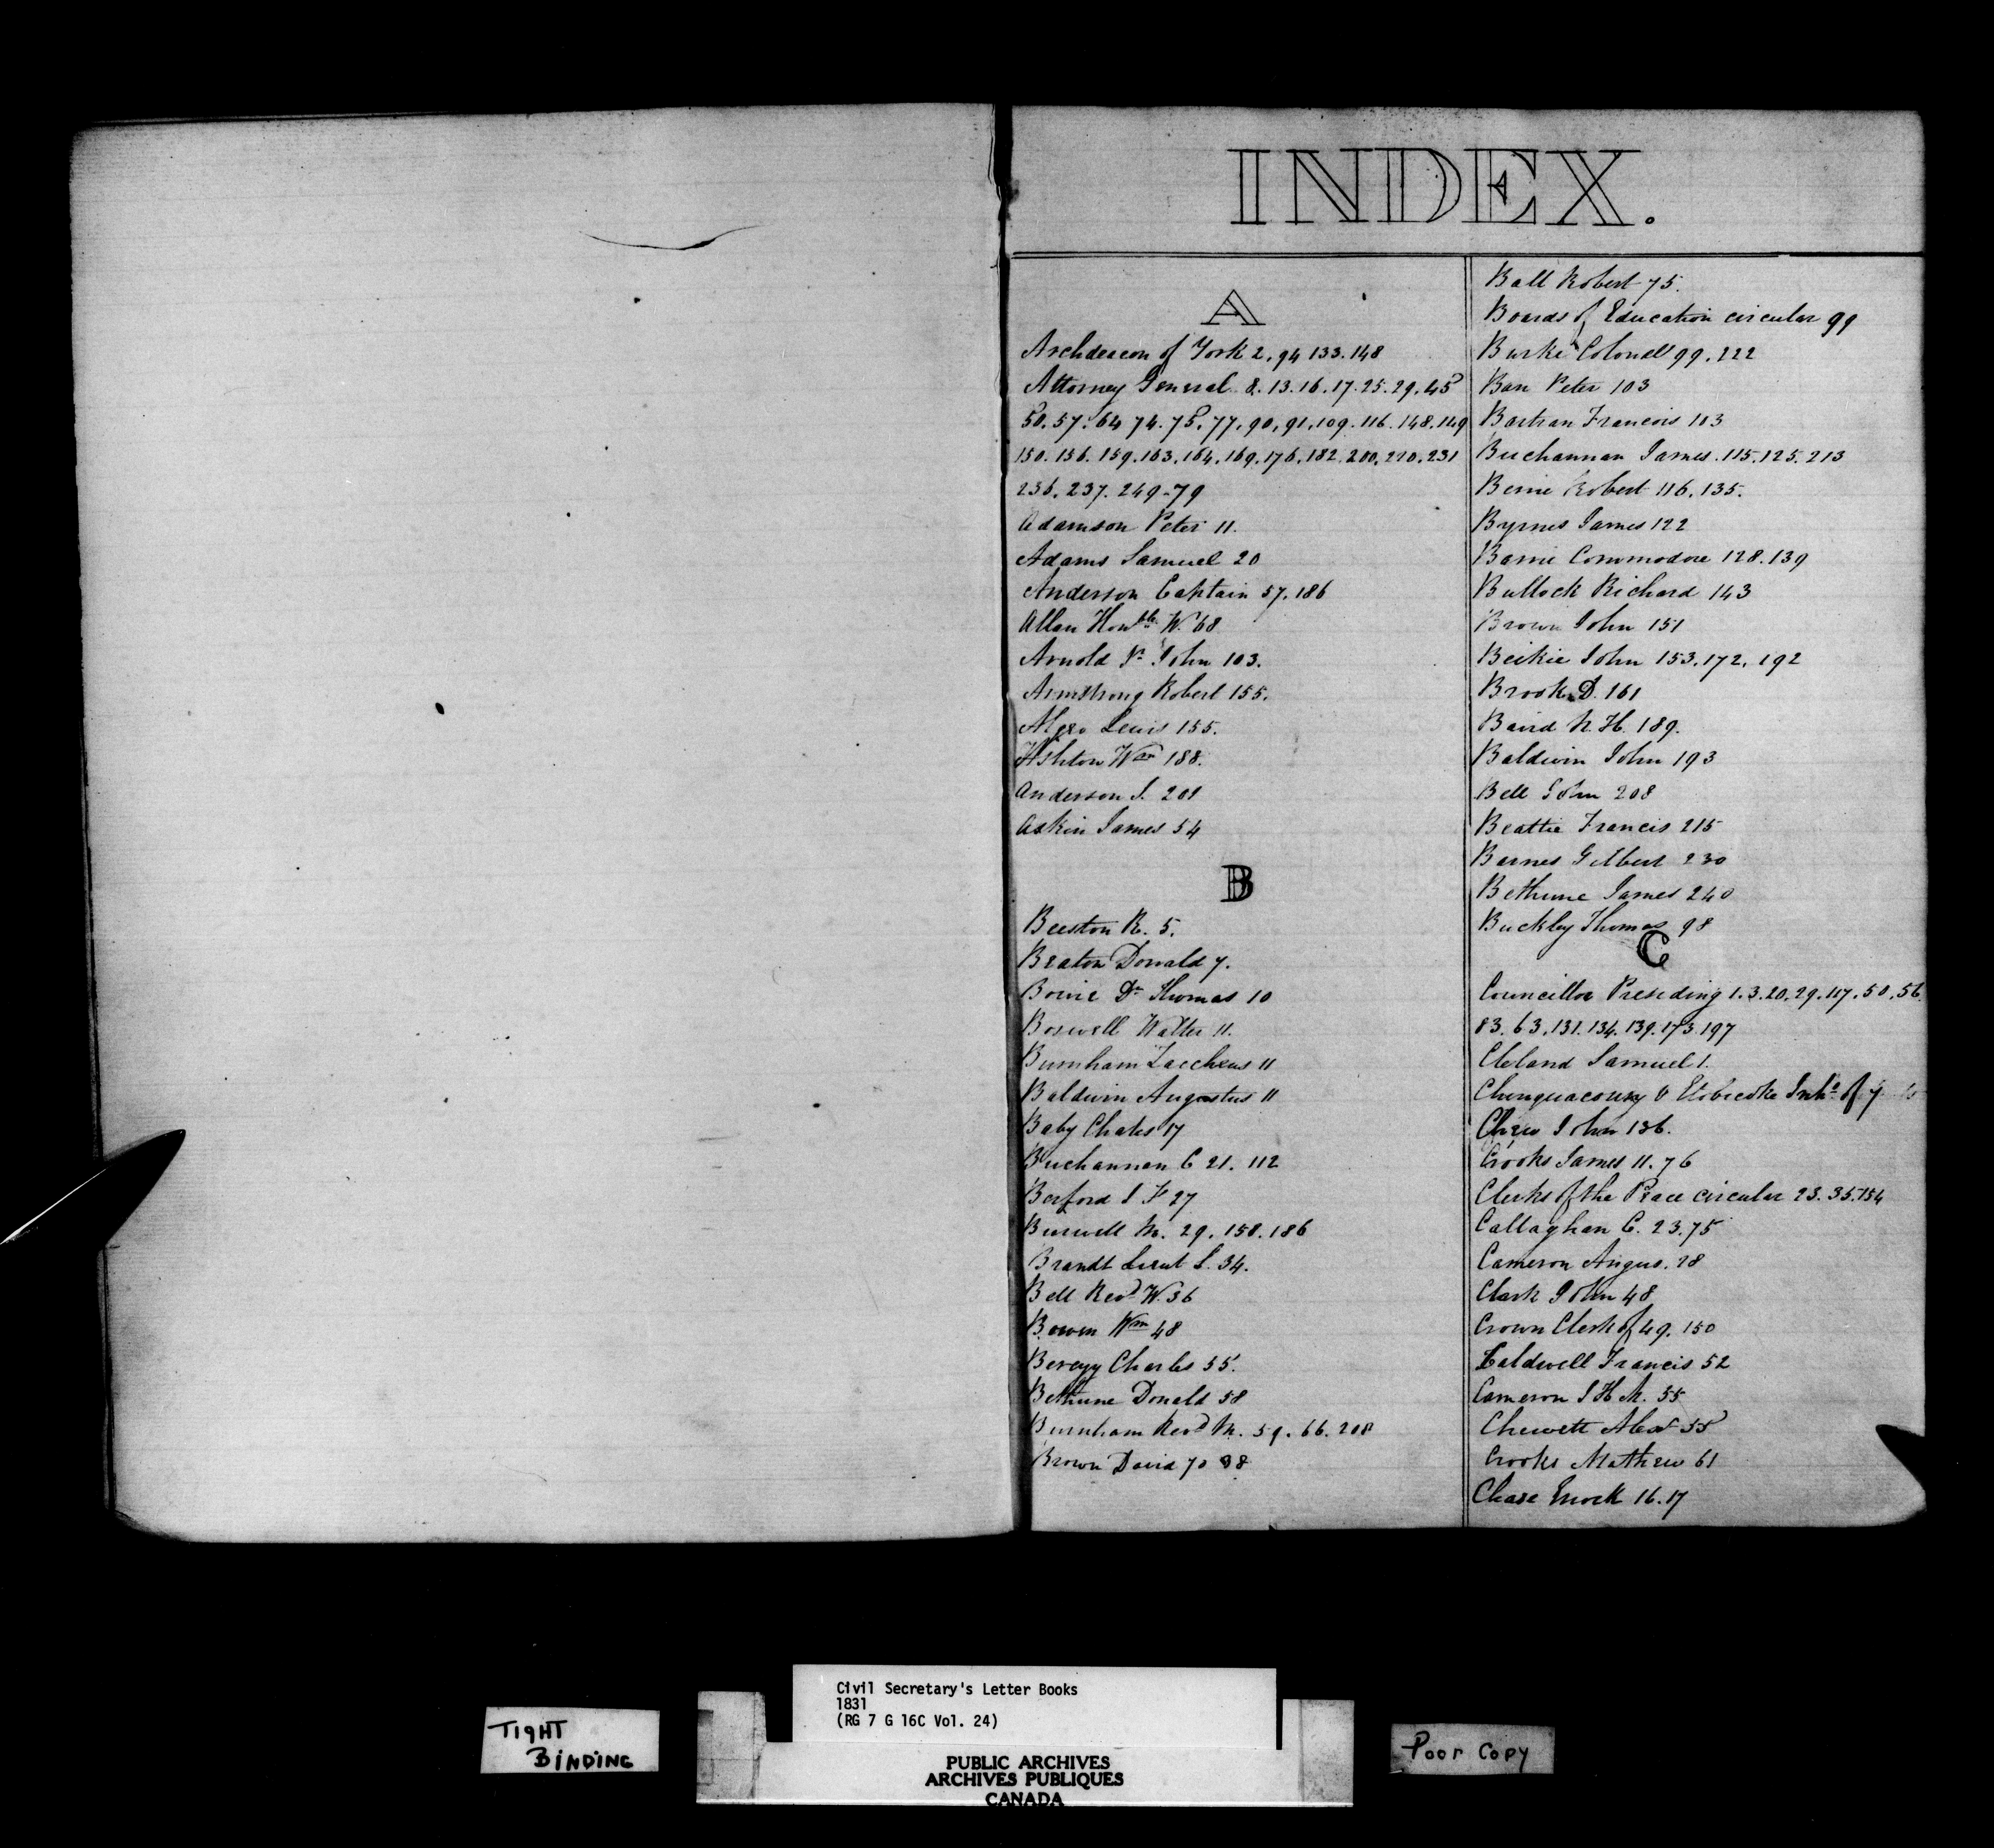 INDEX.
A
Archdeacon of York 2, 94 133. 148
Attorney General 8. 13. 16. 17. 25. 29. 45
50. 57. 64 74. 75, 77, 90, 91, 109. 116. 148. 149
150. 156. 159. 163. 164. 169. 176. 182. 200. 220. 231
236. 237. 249-79
Adamson Peter 11.
Adams Samuel 20
Anderson Captain 57, 186
Allan Honble W. 68
Arnold Jr John 103.
Armstrong Robert 155.
Algeo Lewis 155.
Ashton Wm 188.
Anderson J. 201
Askin James 54
B
Beeston R. 5.
Beaton Donald 7.
Bowie Dr Thomas 10
Boswell Walter 11.
Burnham Zaccheus 11
Baldwin Augustus 11
Baby Chales 17
Buchannan C 21. 112
Berford J F 27
Burwell M. 29. 158. 186
Brandt Lieut L. 34.
Bell Revd W. 36
Bowen Wm 48
Berczy Charles 55.
Bethune Donald 58
Burnham Revd M. 59. 66. 208
Brown David 70 98
Ball Robert 75.
Boards of Education circular 99
Burke Colonel 99. 222
Barr Peter 103
Bartran Francois 103
Buchannan James. 115. 125. 213
Bernie Robert 116, 135.
Byrnes James 122
Barrie Commodore 128. 139
Bullock Richard 143
Brown John 151
Beikie John 153. 172. 192
Brook D. 161
Baird N. H. 189.
Baldwin John 193
Bell John 208
Beattie Francis 215
Barnes Gilbert 230
Bethune James 240
Buckley Thomas 98
C
Councillor Presiding 1. 3. 20. 29. 117. 50. 56.
83. 63. 131. 134. 139. 173. 197
Cleland Samuel 1.
Chinguacousy & Etobicoke Inhs of 7
Chew John 136.
Crooks James 11. 76
Clerks of the Peace circular 23. 35. 154
Callaghan C. 23. 75
Cameron Angus. 28
Clark John 48
Crown Clerk of 49. 150
Caldwell Francis 52
Cameron J H M. 55
Chewett Alexr 55
Crooks Mathew 61
Chase Enock 16. 17
TIGHT
BINDING
Civil Secretary's Letter Books
1831
(RG 7 G 16C Vol. 24)
PUBLIC ARCHIVES
ARCHIVES PUBLIQUES
CANADA
Poor Copy